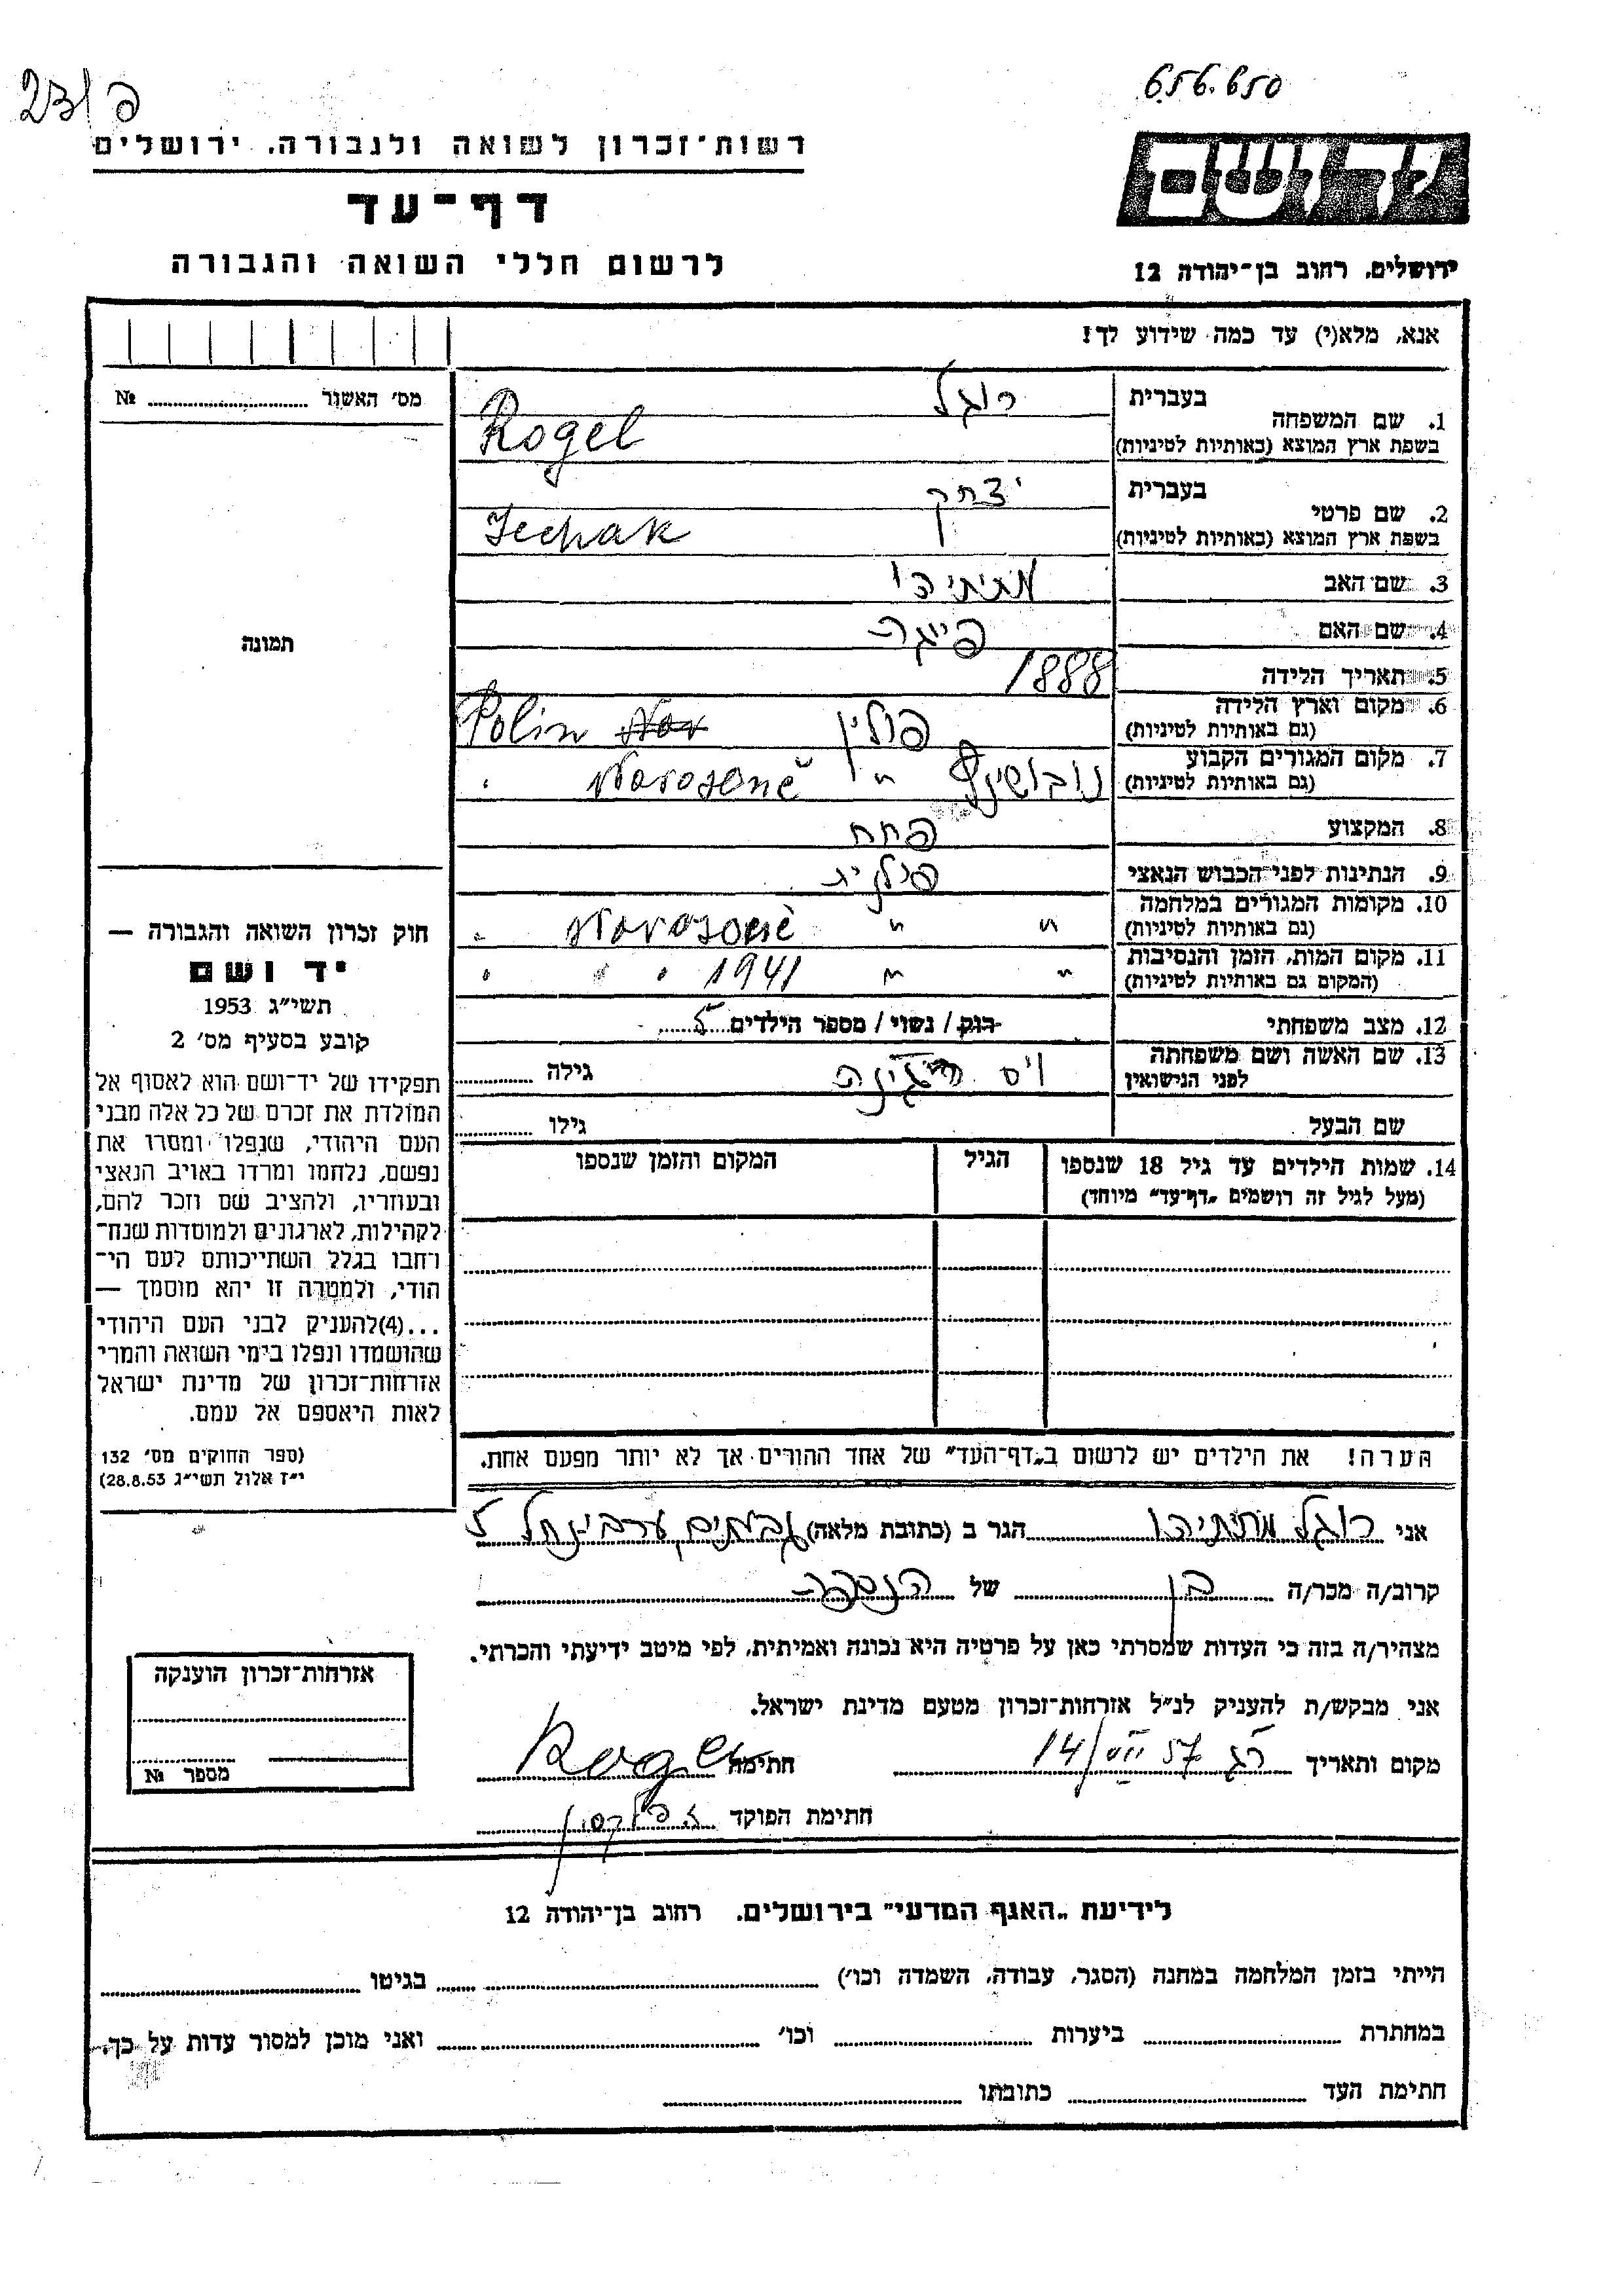 656.650
פ/23
יד ושם
רשות-זכרון לשואה ולגבורה, ירושלים
דף-עד
לרשום חללי השואה והגבורה
ירושלים, רחוב בן-יהודה 12
אנא, מלא(י) עד כמה שידוע לך!
בעברית רוגל
1. שם המשפחה
בשפת ארץ המוצא (באותיות לטיניות) Rogel
בעברית יצחק
2. שם פרטי
בשפת ארץ המוצא (באותיות לטיניות) Jechak
3. שם האב מתיתיהו
4. שם האם פייגה
5. תאריך הלידה 1888
6. מקום וארץ הלידה
(גם באותיות לטיניות) פולין Polin
7. מקום המגורים הקבוע
(גם באותיות לטיניות) " "
8. המקצוע פחח
9. הנתינות לפני הכבוש הנאצי
10. מקומות המגורים במלחמה
(גם באותיות לטיניות) " " "
11. מקום המות, הזמן והנסיבות
(המקום גם באותיות לטיניות) " " 1941 " " "
12. מצב משפחתי רוק / נשוי / מספר הילדים 5
13. שם האשה ושם משפחתה
לפני הנישואין ויס גילה
שם הבעל גילו
14. שמות הילדים עד גיל 18 שנספו
(מעל לגיל זה רושמים „דף-עד" מיוחד)
הגיל
המקום והזמן שנספו
הערה! את הילדים יש לרשום ב„דף-העד" של אחד ההורים אך לא יותר מפעם אחת.
אני רוגל מתיתיהו הגר ב (כתובת מלאה) גבעתיים ערבי נחל 5
קרוב/ה מכר/ה בן של הנספה
מצהיר/ה בזה כי העדות שמסרתי כאן על פרטיה היא נכונה ואמיתית, לפי מיטב ידיעתי והכרתי.
אני מבקש/ת להעניק לנ"ל אזרחות-זכרון מטעם מדינת ישראל.
מקום ותאריך רג 14/VII 57 חתימה Rogel
חתימת הפוקד
מס' האשור №
תמונה
חוק זכרון השואה והגבורה —
יד ושם
תשי"ג 1953
קובע בסעיף מס' 2
תפקידו של יד-ושם הוא לאסוף אל
המולדת את זכרם של כל אלה מבני
העם היהודי, שנפלו ומסרו את
נפשם, נלחמו ומרדו באויב הנאצי
ובעוזריו, ולהציב שם וזכר להם,
לקהילות, לארגונים ולמוסדות שנח-
רחבו בגלל השתייכותם לעם הי-
הודי, ולמטרה זו יהא מוסמך —
...(4)להעניק לבני העם היהודי
שהושמדו ונפלו בימי השואה והמרי
אזרחות-זכרון של מדינת ישראל
לאות היאספם אל עמם.
(ספר החוקים מס' 132
י"ז אלול תשי"ג 28.8.53)
אזרחות-זכרון הוענקה
מספר №
לידיעת „האגף המדעי" בירושלים. רחוב בן-יהודה 12
הייתי בזמן המלחמה במחנה (הסגר, עבודה, השמדה וכו') בגיטו
במחתרת ביערות וכו' ואני מוכן למסור עדות על כך.
חתימת העד כתובתו